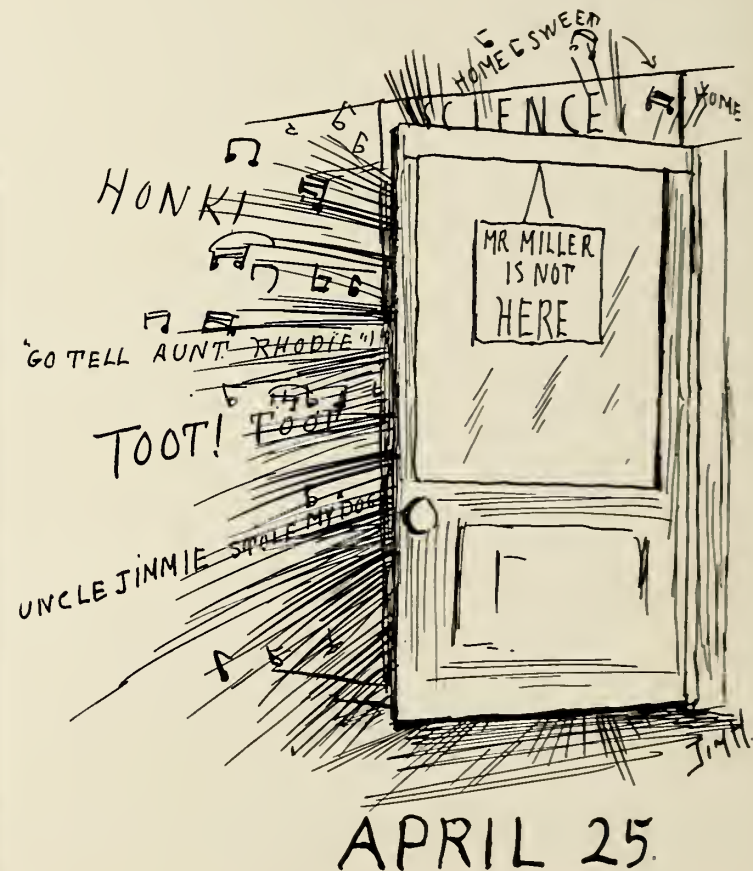 HOME SWEET
HOME
SCIENCE
HONK!
MR MILLER
IS NOT
HERE
"GO TELL AUNT RHODIE"!
TOOT! TOOT
UNCLE JIMMIE STOLE MY DOG
JIM M.
APRIL 25.